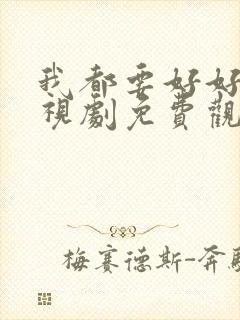 我都要好好
視劇免費觀
梅賽德斯-奔馳